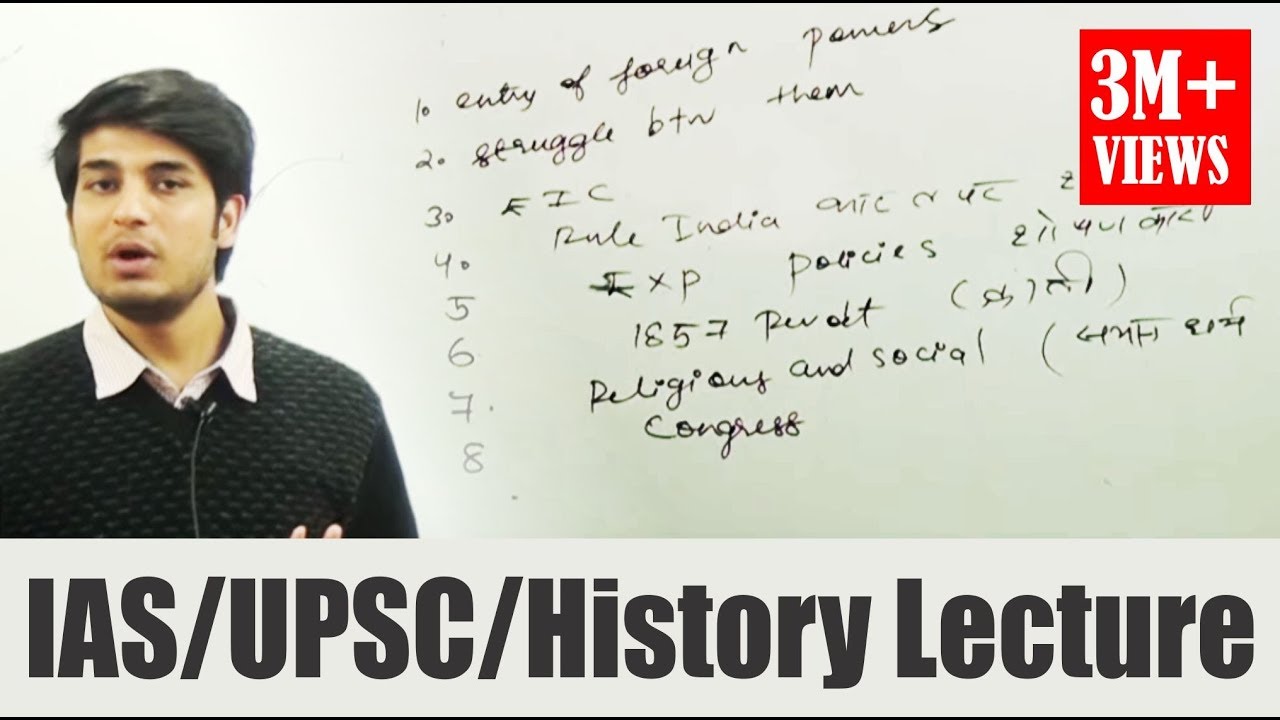 1. entry of foreign powers
2. struggle btw them
3. EIC
4. Rule India
5 Exp policies
6 1857 Revolt (क्रान्ती)
7. Religious and social (
8 Congress
3M+
VIEWS
IAS/UPSC/History Lecture